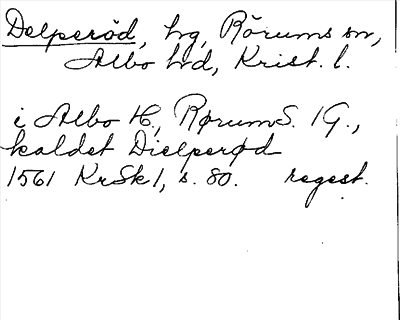 Delperöd, hg, Rörums sn,
Albo hd, Krist. l.
i Albo H, Rørum S. 1 G.,
kaldet Dielperød
1561 KrSk 1, s. 80. regest.